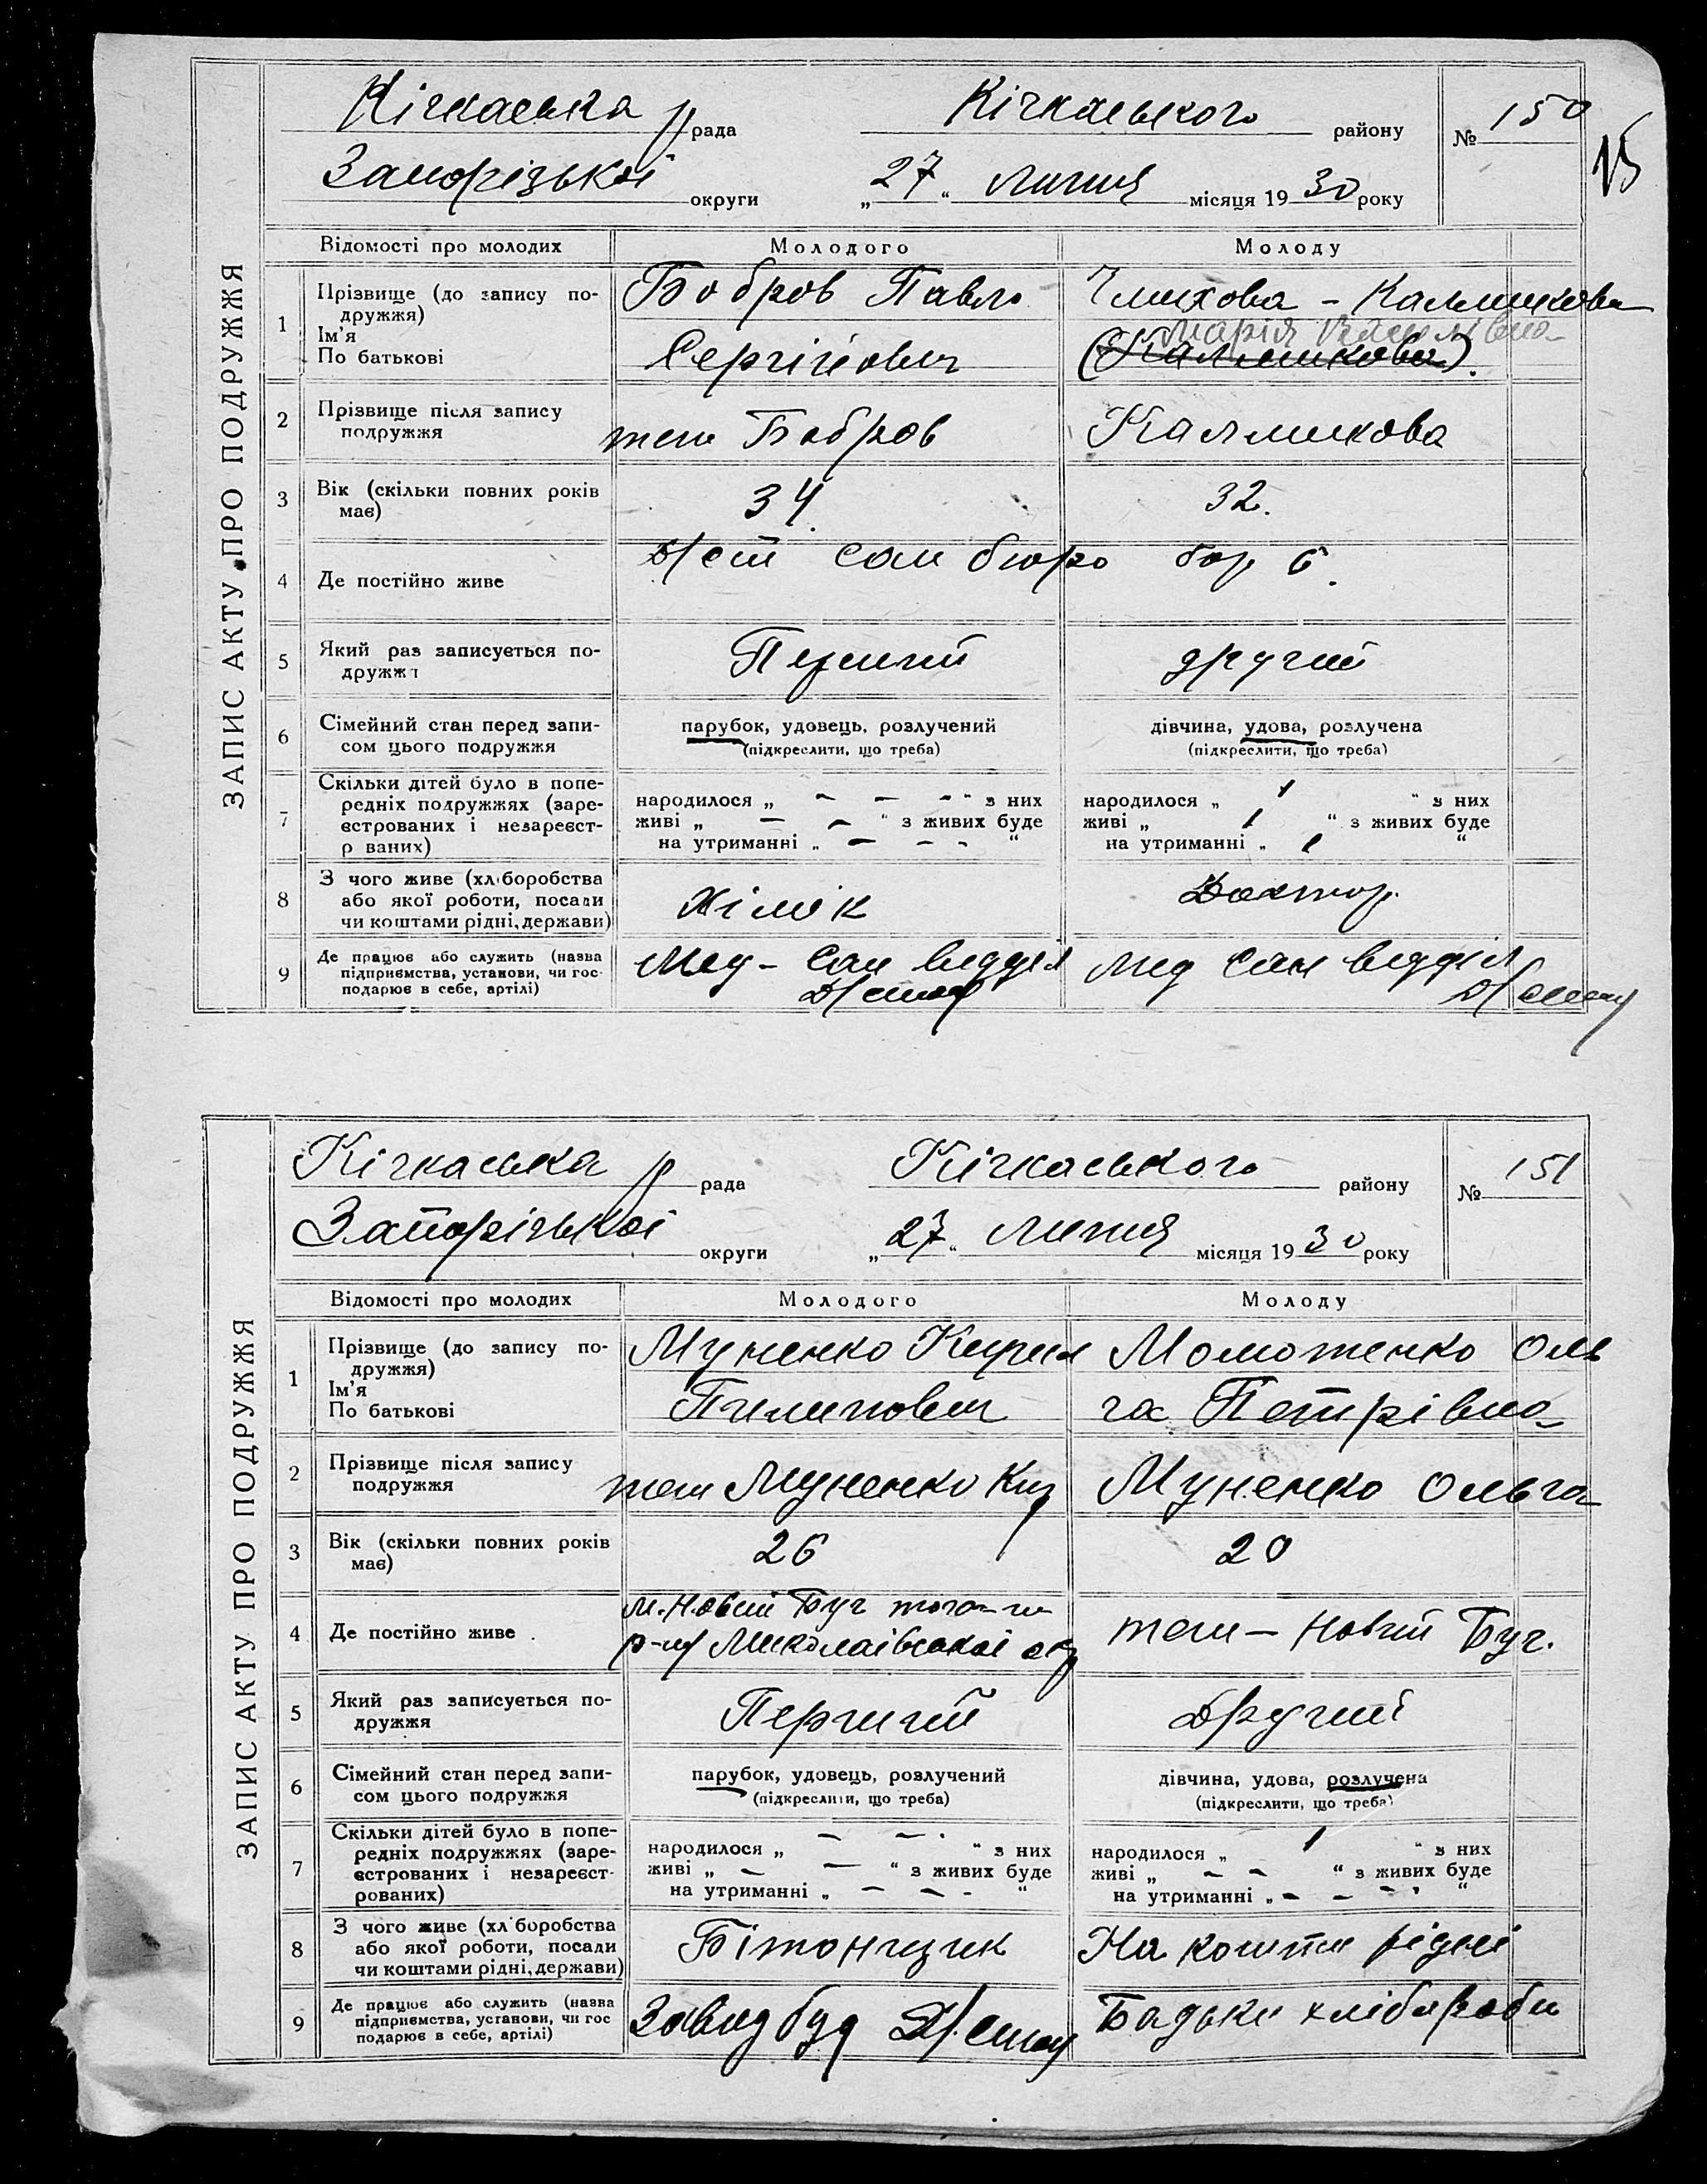 ЗАПИС АКТУ ПРО ПОДРУЖЖЯ
Кічкаська р рада Кічкаського району № 150
15
Запорізької округи „27“ липня місяця 1930 року
Відомості про молодих Молодого Молоду
1 Прізвище (до запису по-
дружжя)
Ім'я
По батькові
Бобров Павло
Сергійович
Калмикова
Марія
(Калмикова).
2 Прізвище після запису
подружжя
теж Бобров Калмикова
3 Вік (скільки повних років
має)
34 32.
4 Де постійно живе
Д/ст сан бюро 6.
5 Який раз записується по-
дружжя
Перший другий
6 Сімейний стан перед запи-
сом цього подружжя
парубок, удовець, розлучений
(підкреслити, що треба)
дівчина, удова, розлучена
(підкреслити, що треба)
7 Скільки дітей було в попе-
редніх подружжях (заре-
єстрованих і незареєст-
р ваних)
народилося „ — — — “ з них
живі „ — — “ з живих буде
на утриманні „ — — - “
народилося „ 1 “ з них
живі „ 1 “ з живих буде
на утриманні „ 1 “
8 З чого живе (хл боробства
або якої роботи, посади
чи коштами рідні, держави)
Хімік Доктор.
9 Де працює або служить (назва
підприємства, установи, чи гос-
подарює в себе, артілі)
Мед - Сан відділ
Д/стоу
Мед Сан відділ
Д/стоу
ЗАПИС АКТУ ПРО ПОДРУЖЖЯ
Кічкаська р рада Кічкаського району № 151
Запорізької округи „27“ липня місяця 1930 року
Відомості про молодих Молодого Молоду
1 Прізвище (до запису по-
дружжя)
Ім'я
По батькові
Муненко Кирил
Пилипович
Момотенко Оль
га Петрівна
2 Прізвище після запису
подружжя
теж Муненко Кир Муненко Ольга
3 Вік (скільки повних років
має)
26 20
4 Де постійно живе
м. Новий Буг того-ж
р-ну Миколаівської окр
теж — Новий Буг.
5 Який раз записується по-
дружжя
Перший Другий
6 Сімейний стан перед запи-
сом цього подружжя
парубок, удовець, розлучений
(підкреслити, що треба)
дівчина, удова, розлучена
(підкреслити, що треба)
7 Скільки дітей було в попе-
редніх подружжях (заре-
єстрованих і незареєст-
рованих)
народилося „ — — “ з них
живі „ — — “ з живих буде
на утриманні „ — — - “
народилося „ 1 “ з них
живі „ — — “ з живих буде
на утриманні „ — — — “
8 З чого живе (хл боробства
або якої роботи, посади
чи коштами рідні, держави)
Бітонщик На кошти рідні
9 Де працює або служить (назва
підприємства, установи, чи гос
подарює в себе, артілі)
Заводбуд Д/стоу Бадьки хлібороби